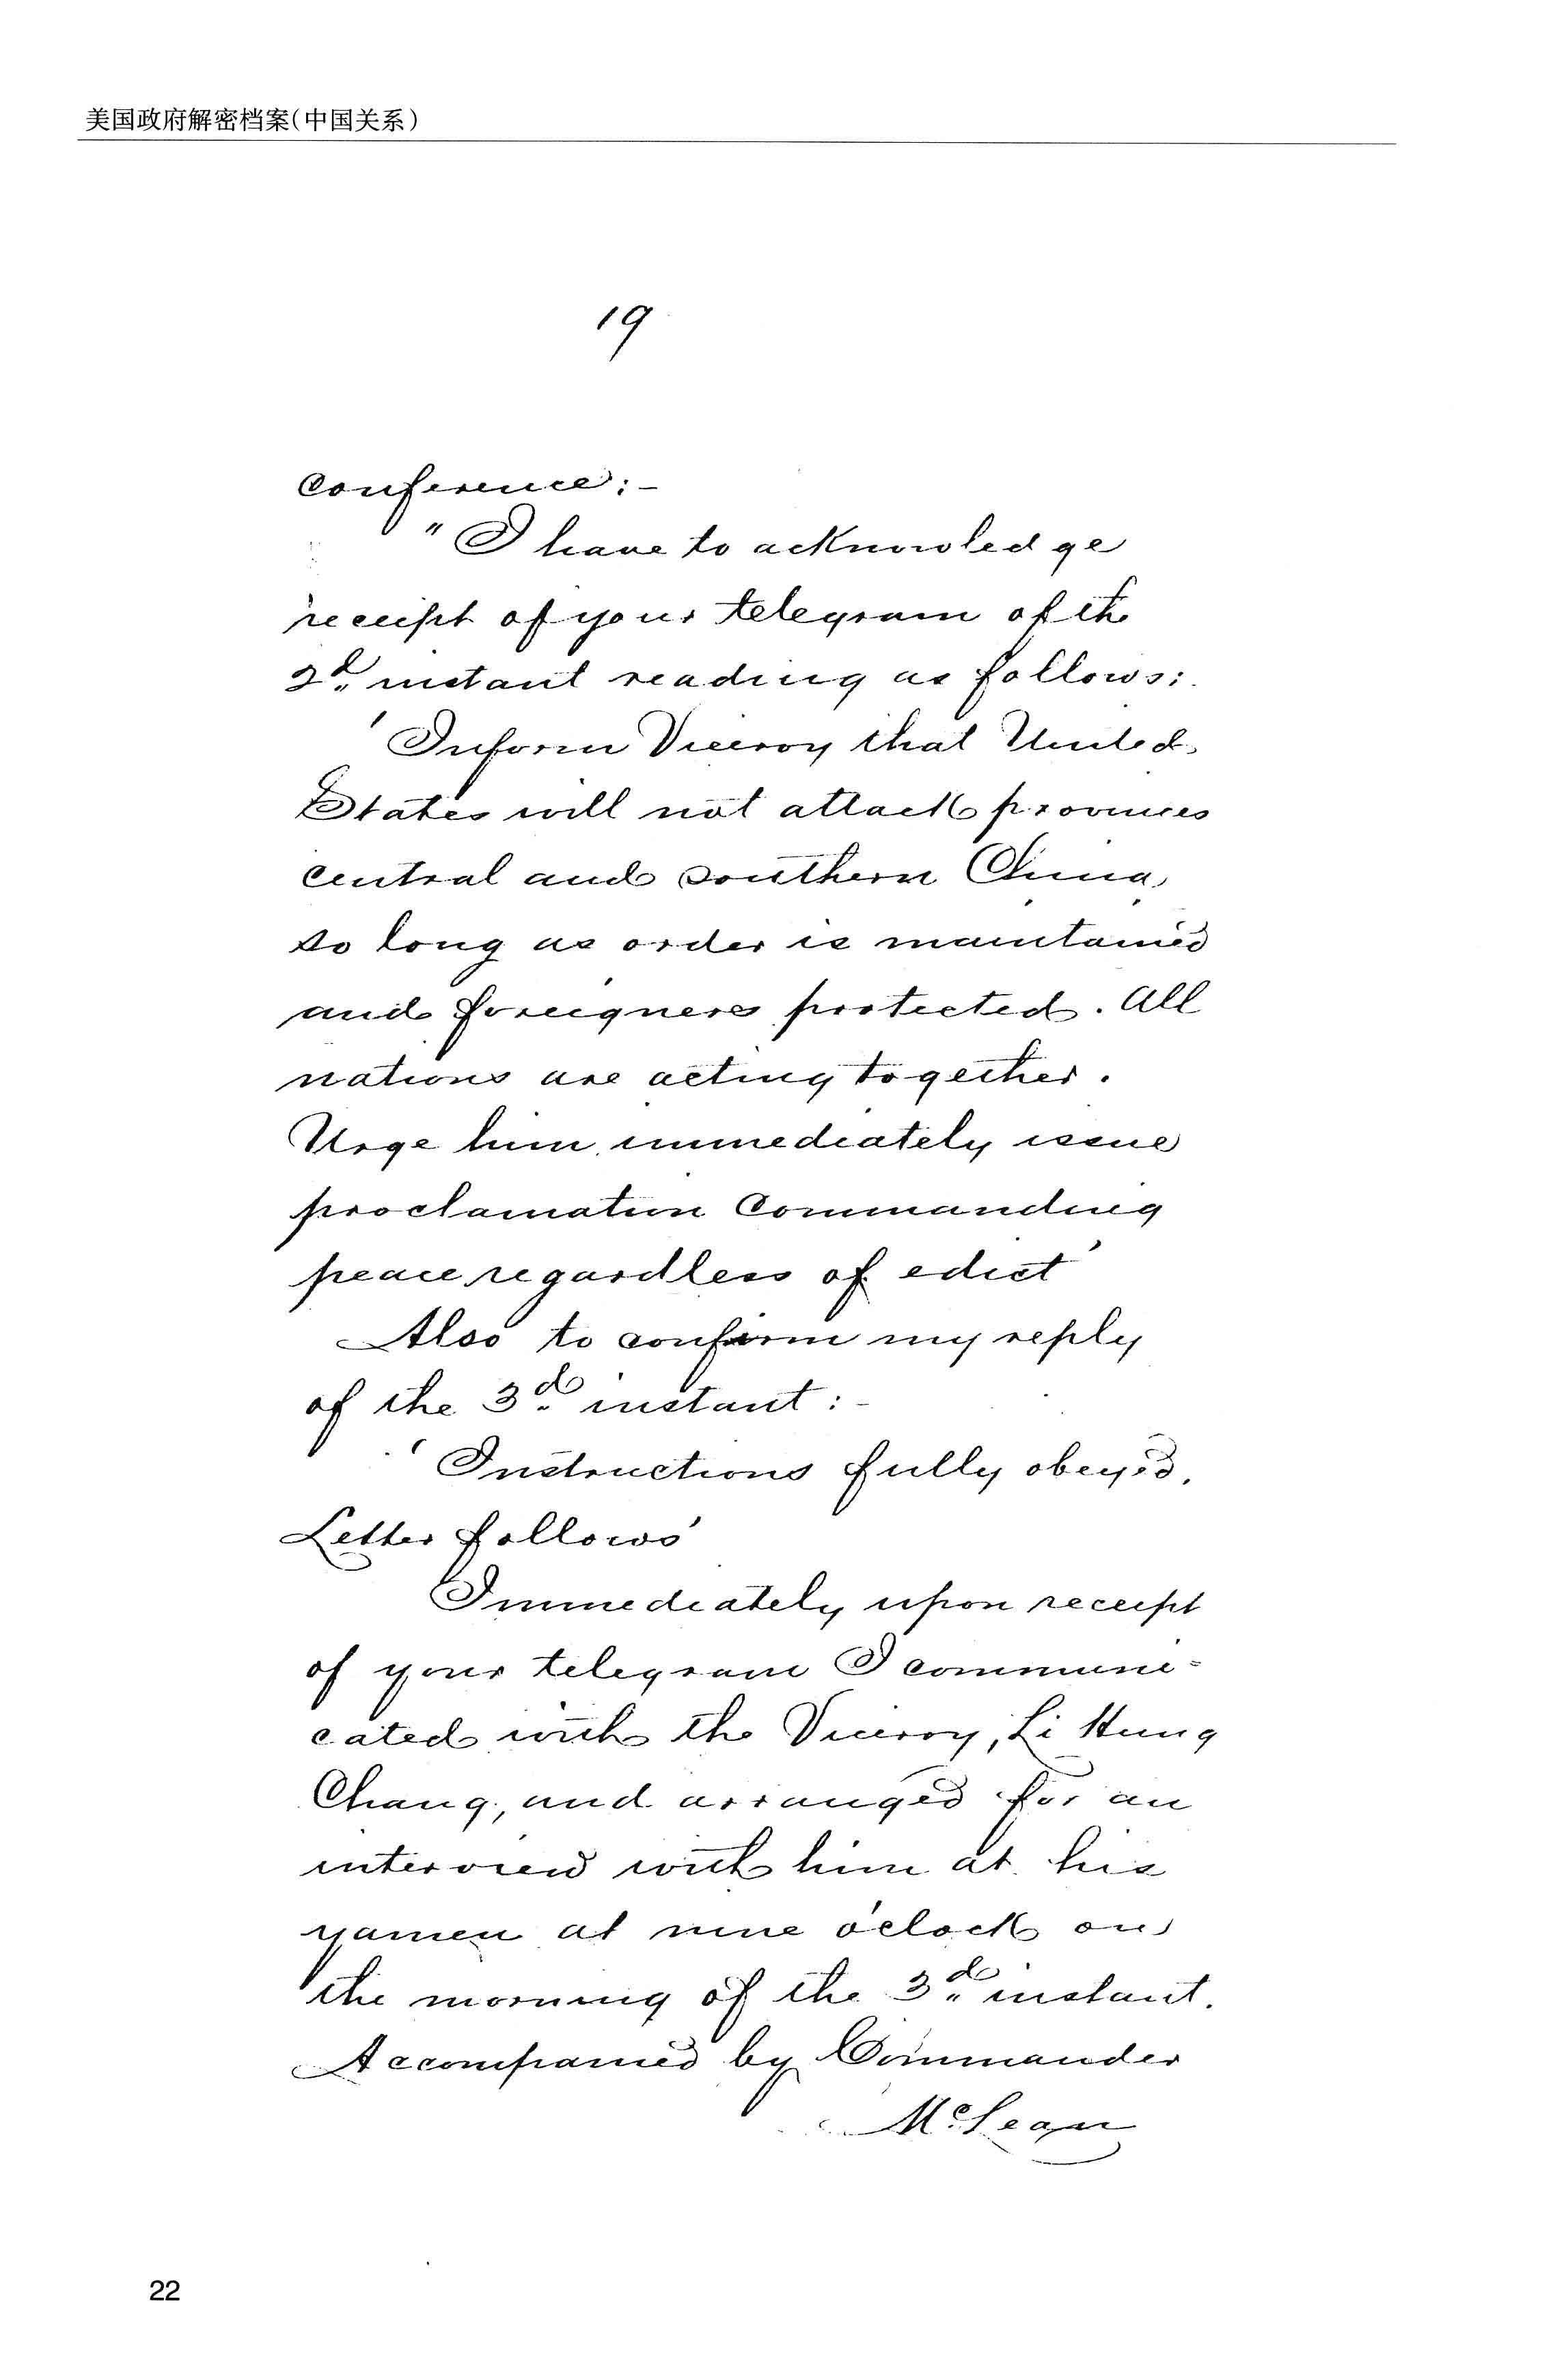 美国政府解密档案(中国关系)
19
conference:-
"I have to acknowledge
receipt of your telegram of the
2d. instant reading as follows:
'Inform Viceroy that United
States will not attack provinces
central and southern China,
so long as order is maintained
and foreigners protected. All
nations are acting together.
Urge him immediately issue
proclamation Commanding
peace regardless of edict'
Also to confirm my reply
of the 3d. instant:-
'Instructions fully obeyed.
Letter follows'
Immediately upon receipt
of your telegram I communi-
cated with the Viceroy, Li Hung
Chang, and arranged for an
interview with him at his
yamen at nine o'clock on
the morning of the 3d. instant.
Accompanied by Commander
McLean
22